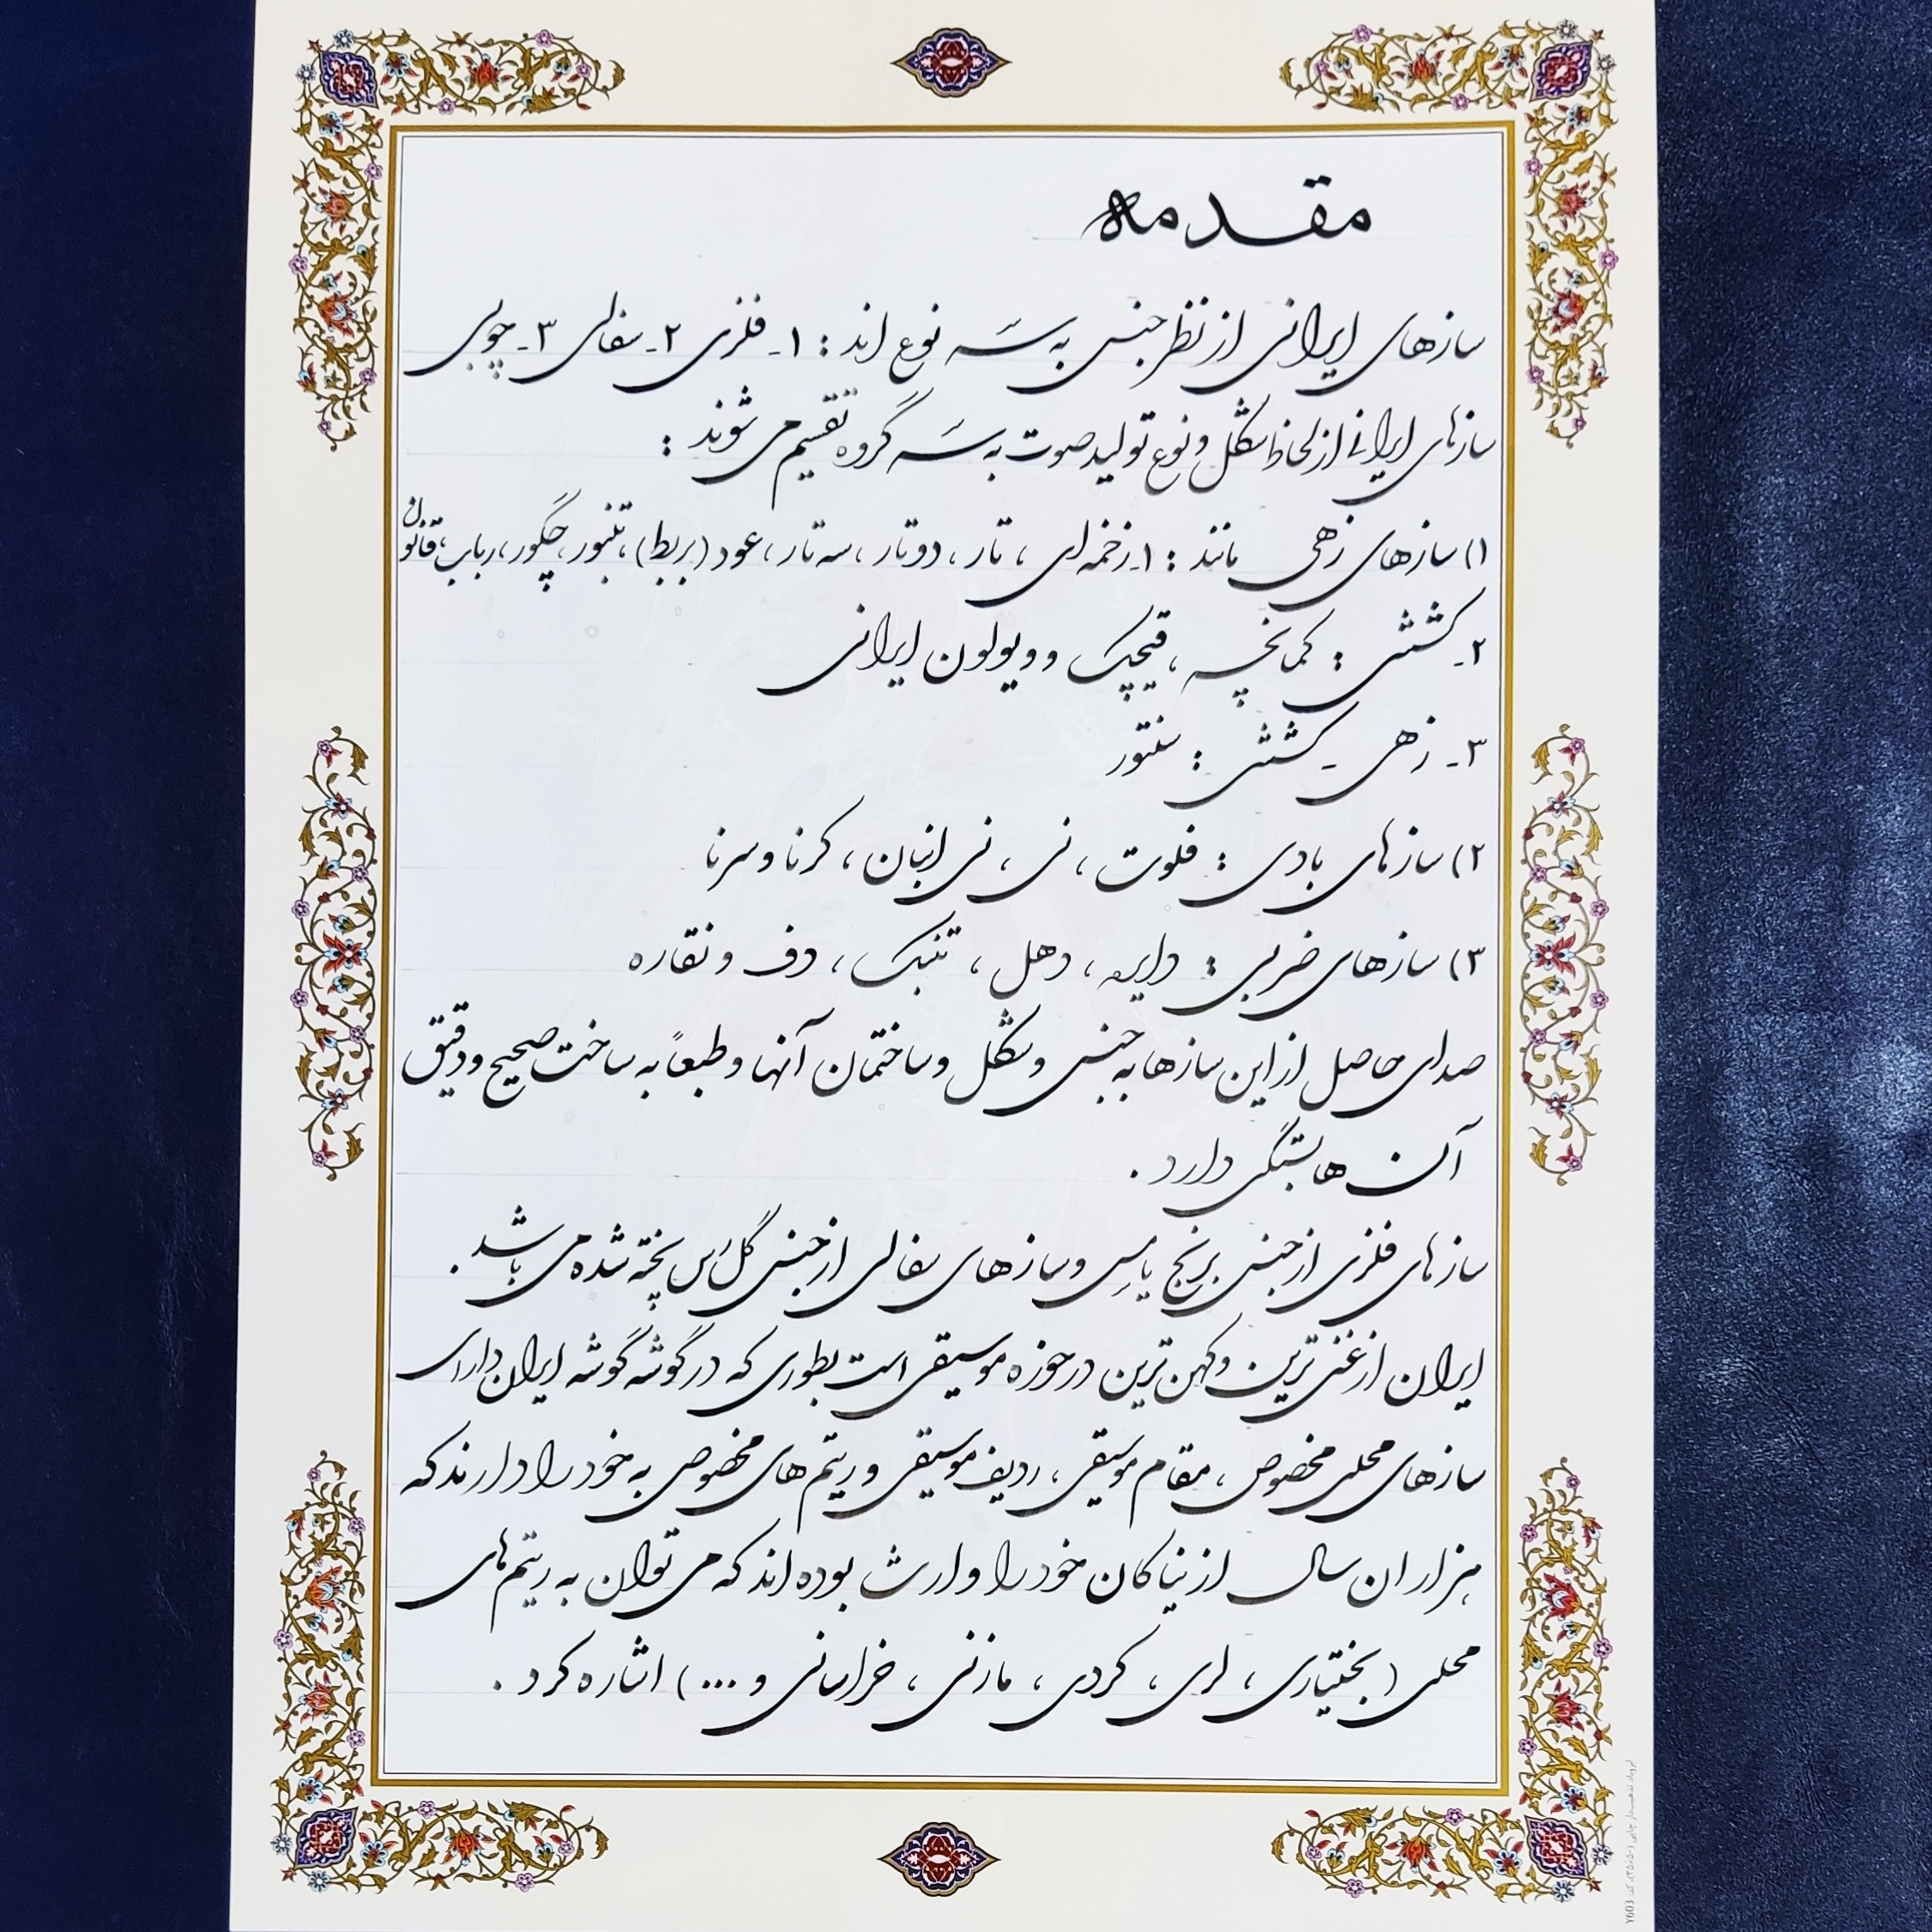 مقدمه
سازهای ایرانی از نظر جنس به سه نوع اند : ۱- فلزی ۲- سفالی ۳- چوبی
سازهای ایرانی از لحاظ شکل و نوع تولید صوت به سه گروه تقسیم می شوند :
۱) سازهای زهی مانند : ۱- زخمه ای ، تار ، دوتار ، سه تار ، عود (بربط) ، تنبور ، چگور ، رباب ، قانون
۲- کششی : کمانچه ، قیچک و ویولون ایرانی
۳- زهی - کششی : سنتور
۲) سازهای بادی : فلوت ، نی ، نی انبان ، کرنا و سرنا
۳) سازهای ضربی : دایره ، دهل ، تنبک ، دف و نقاره
صدای حاصل از این سازها به جنس و شکل و ساختمان آنها و طبعاً به ساخت صحیح و دقیق
آن ها بستگی دارد .
سازهای فلزی از جنس برنج یا مس و سازهای سفالی از جنس گل رس پخته شده می باشد .
ایران از غنی ترین و کهن ترین در حوزه موسیقی است بطوری که در گوشه گوشه ایران دارای
سازهای محلی مخصوص ، مقام موسیقی ، ردیف موسیقی و ریتم های مخصوص به خود را دارند که
هزاران سال از نیاکان خود را وارث بوده اند که می توان به ریتم های
محلی (بختیاری ، لری ، کردی ، مازنی ، خراسانی و ...) اشاره کرد .